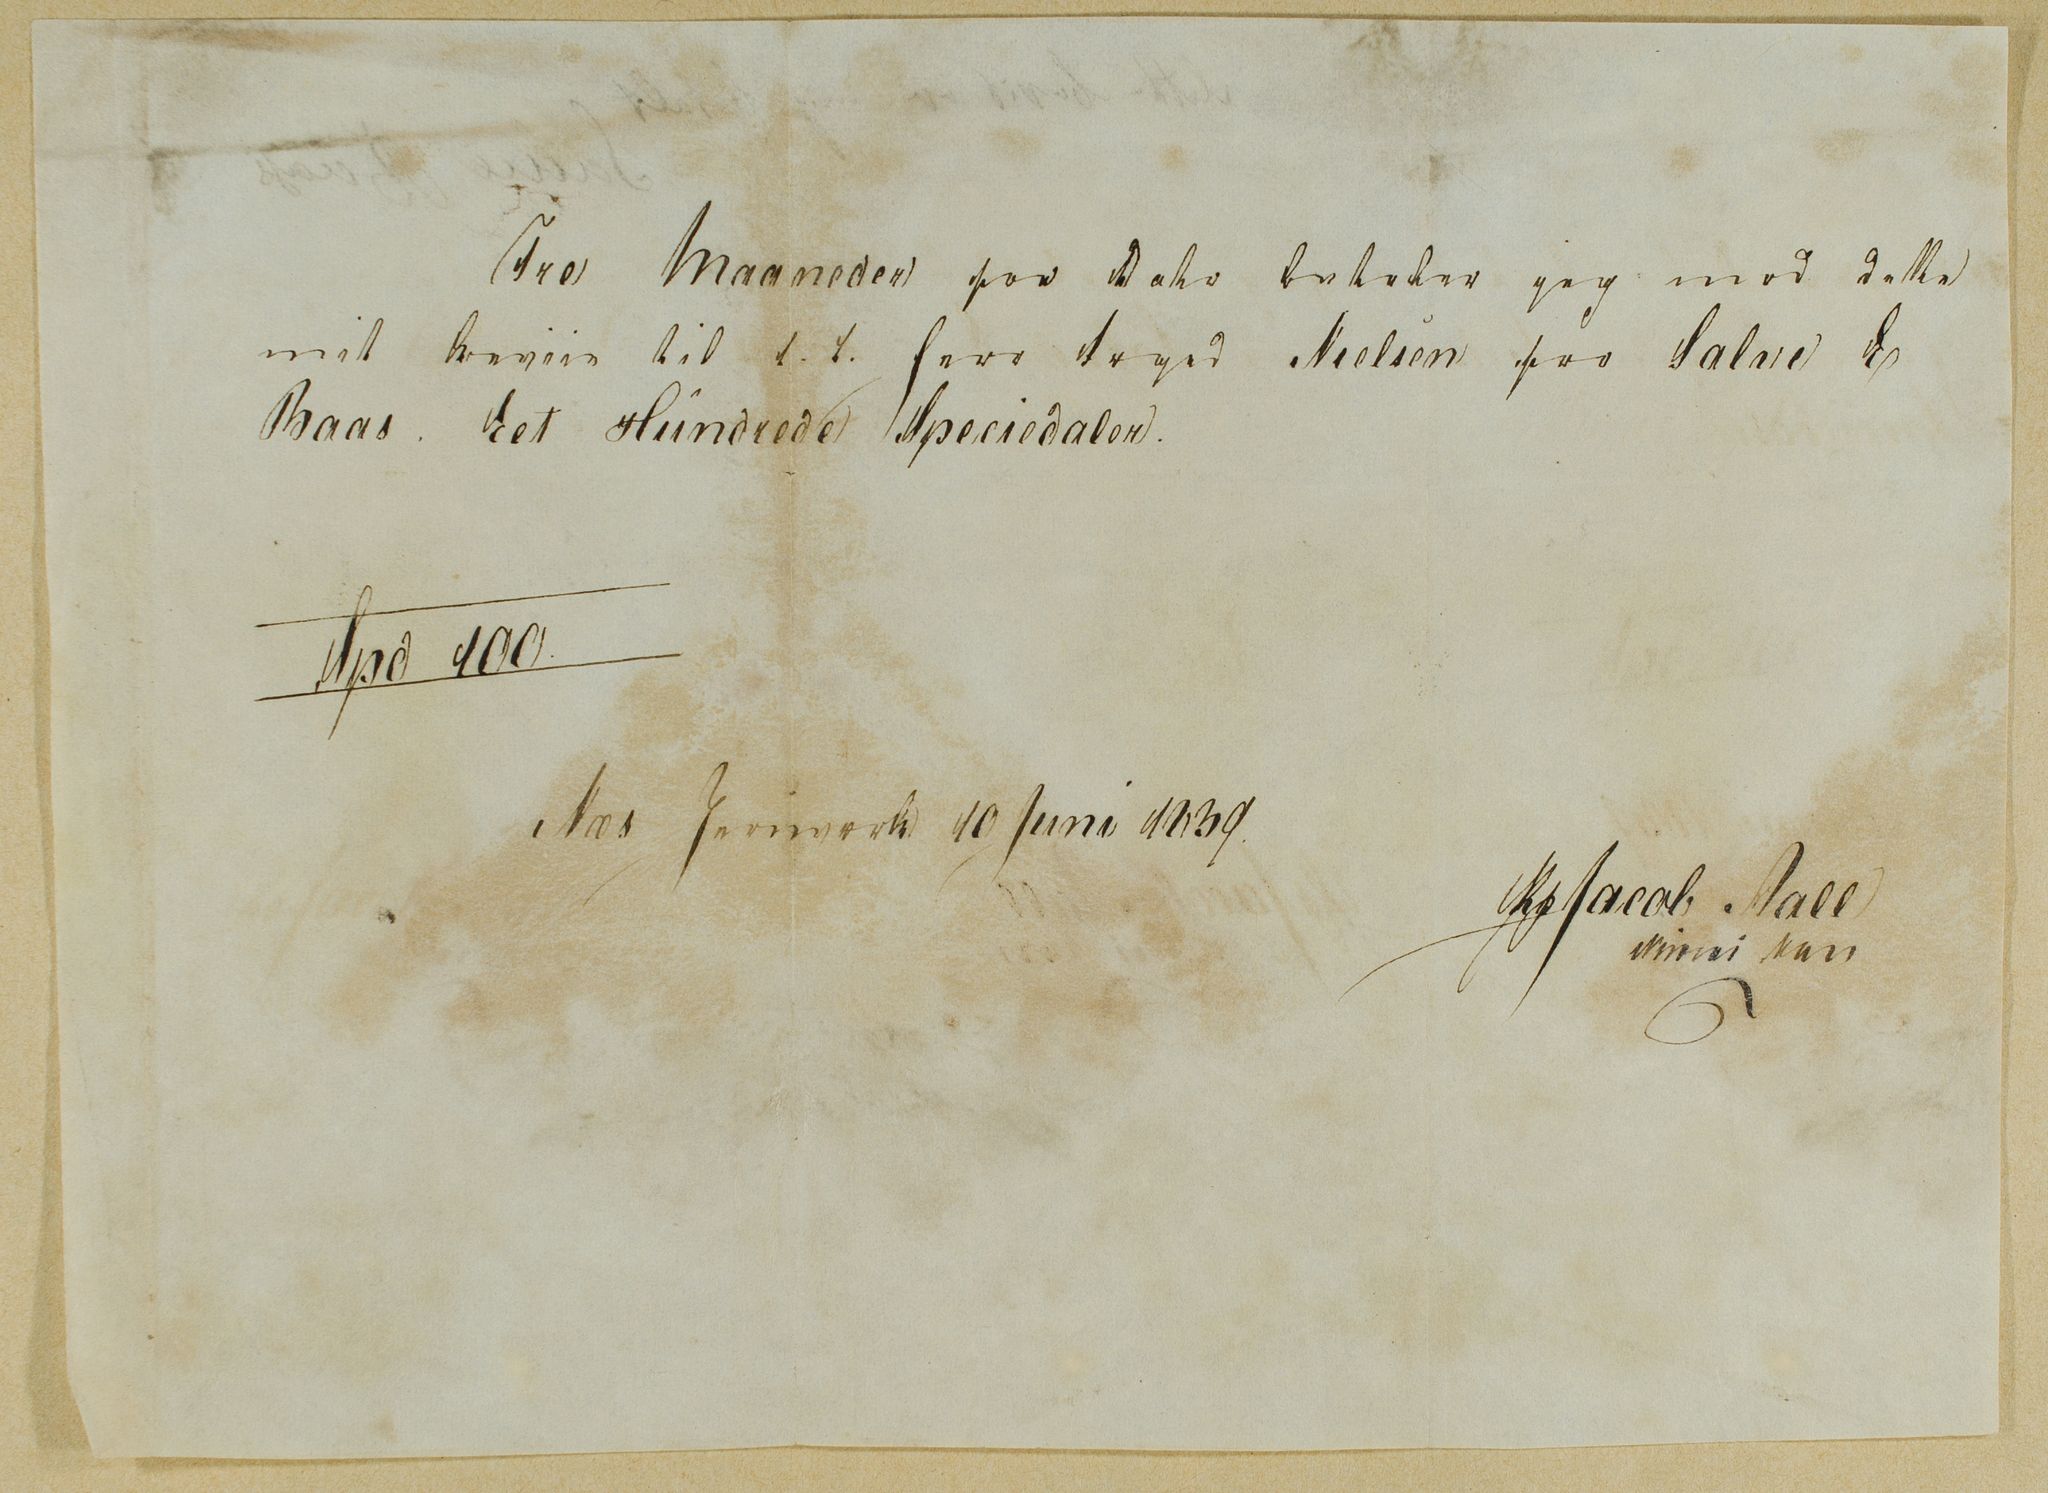 Tre Maaneder fra Dato betaler jeg mod dette
mit beviis til S. T. Herr Terged Nielsen fra Salve &
Baas. Eet Hundrede Speciedaler.
Spd 100.
Næs Jernverk 10 Juni 1839.
Jacob Aall